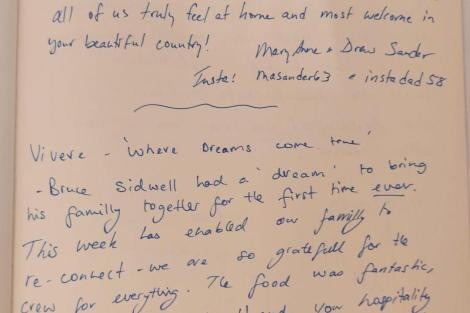 all of us truly feel at home and most welcome in
your beautiful country!
Mary Anne + Drew Sander
Insta! masander63 + instadad58
Vivere - 'Where Dreams come true'
- Bruce Sidwell had a 'dream' to bring
his familly together for the first time ever.
This week has enabled our familly to
re-connect - we are so gratefull for the
crew for everything. The food was fantastic,
your hospitality